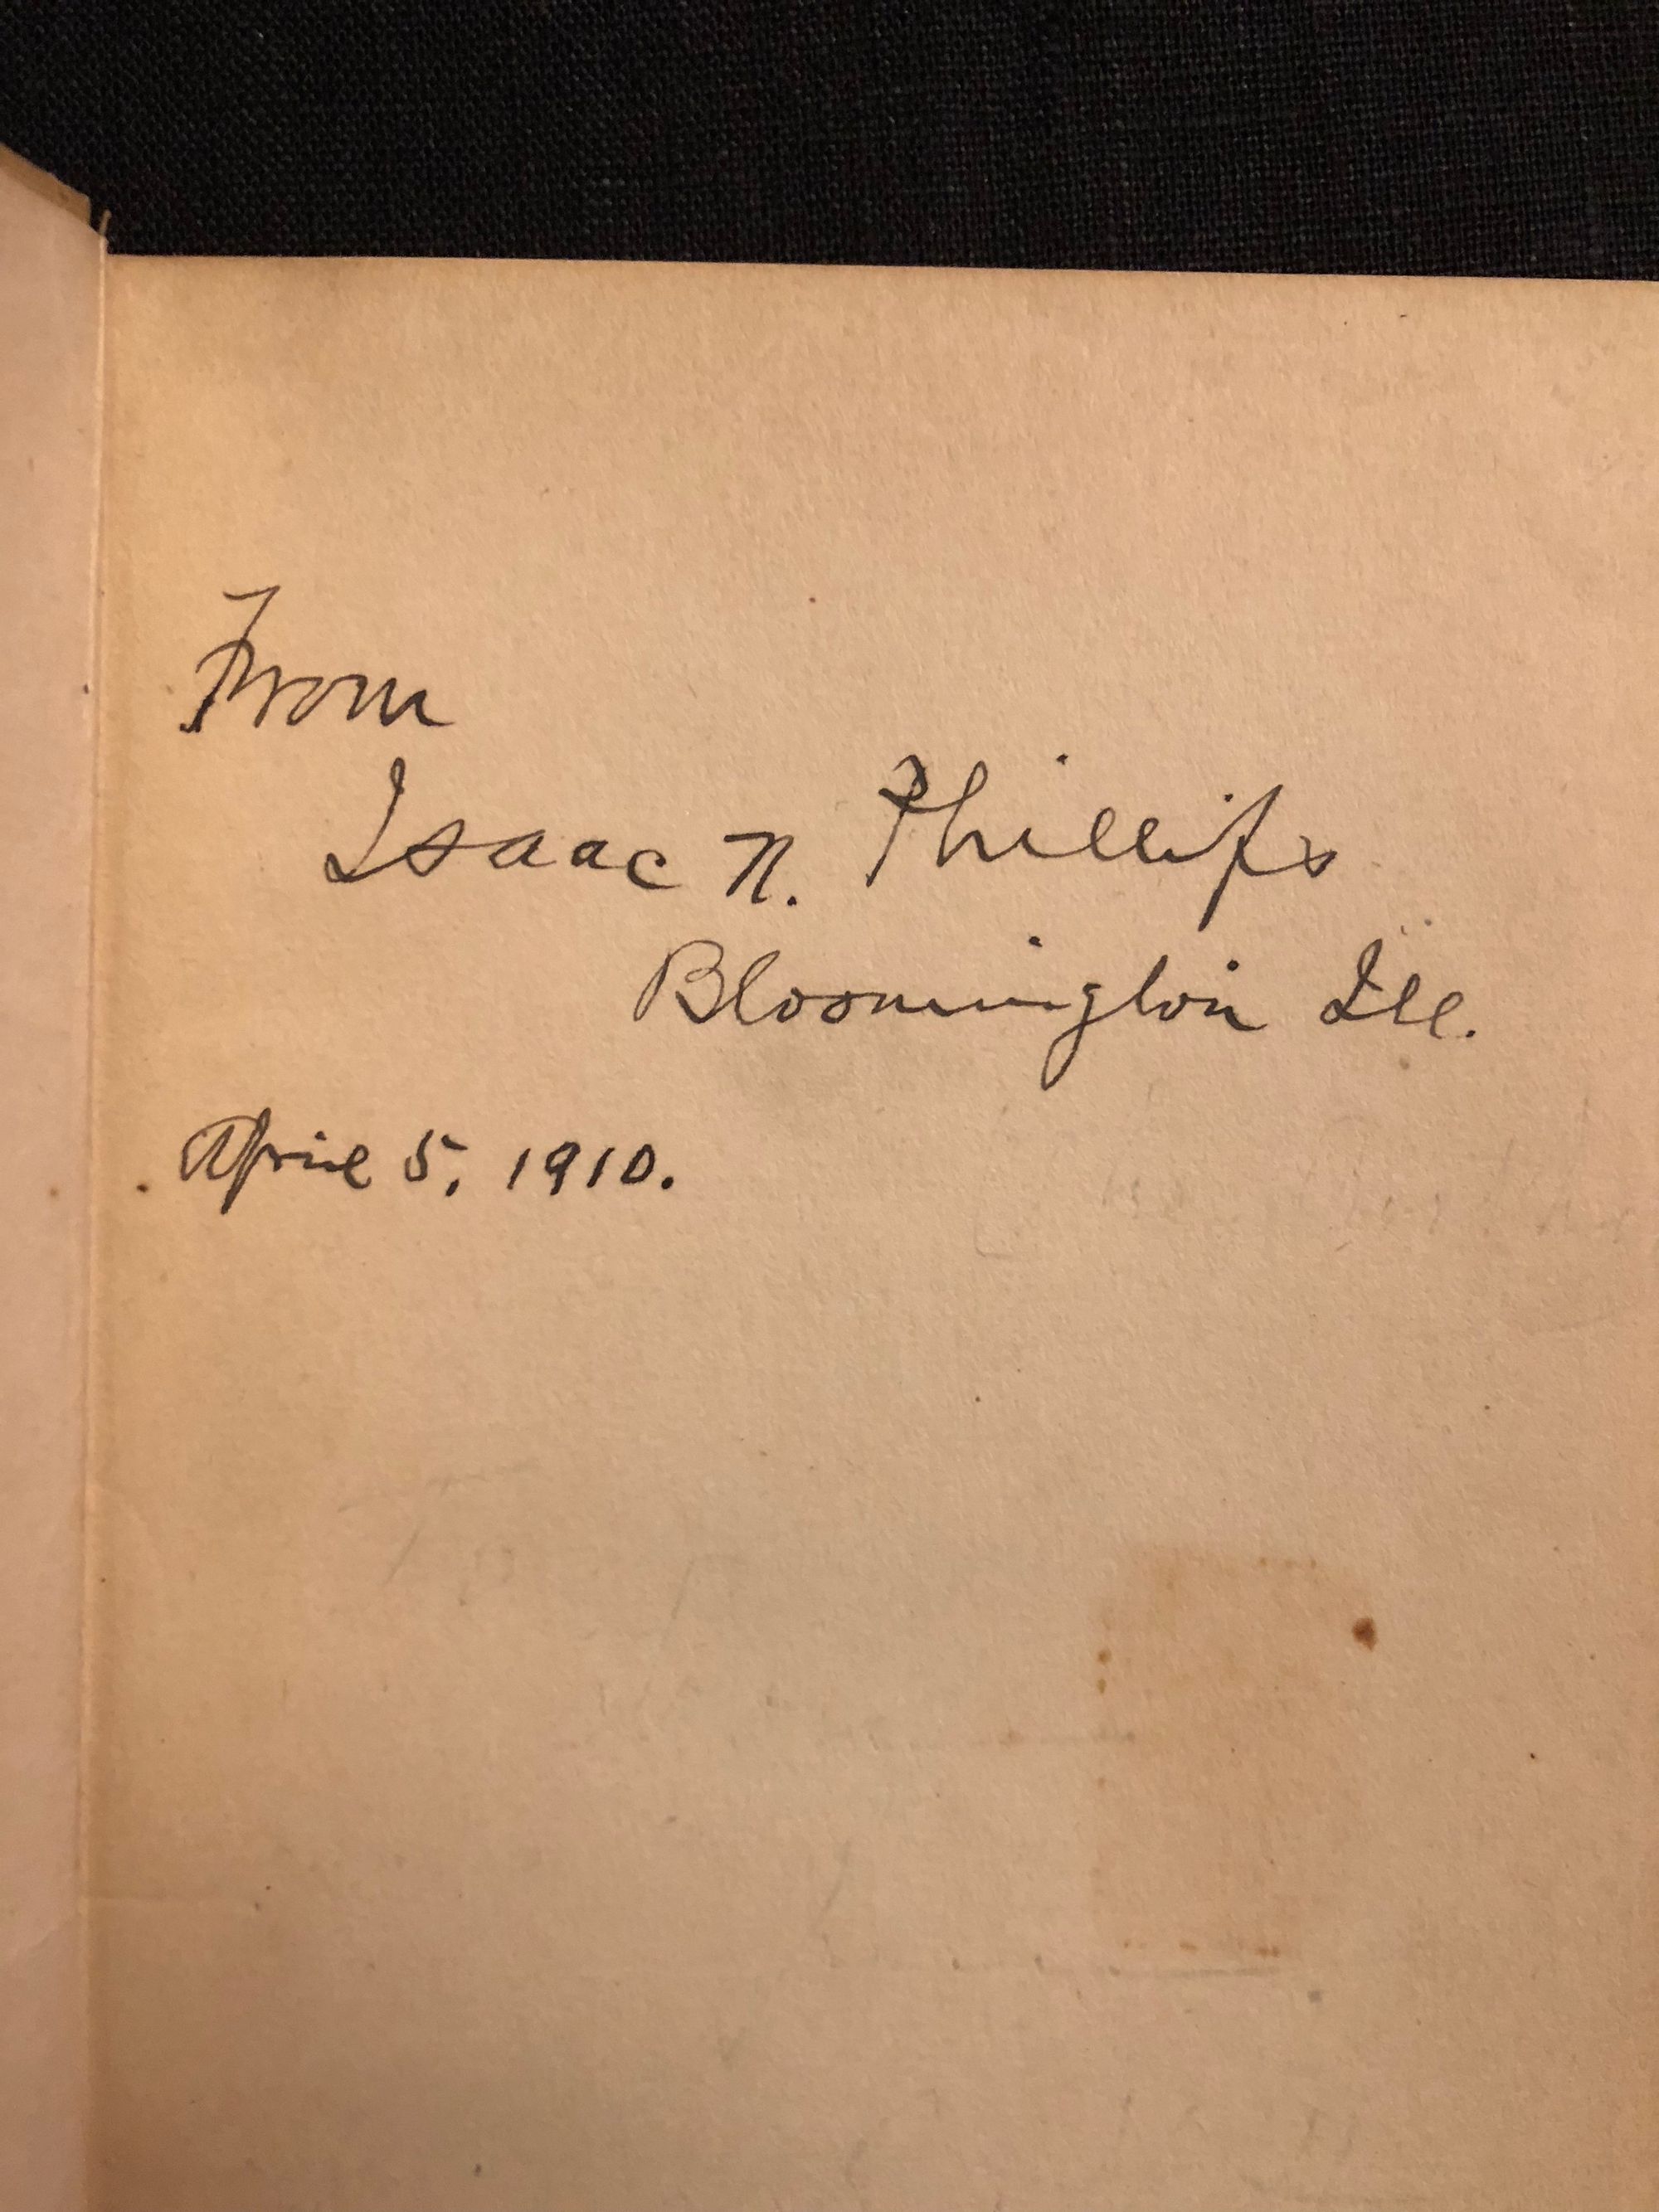 From
Isaac N. Phillips
Bloomington Ill.
April 5, 1910.